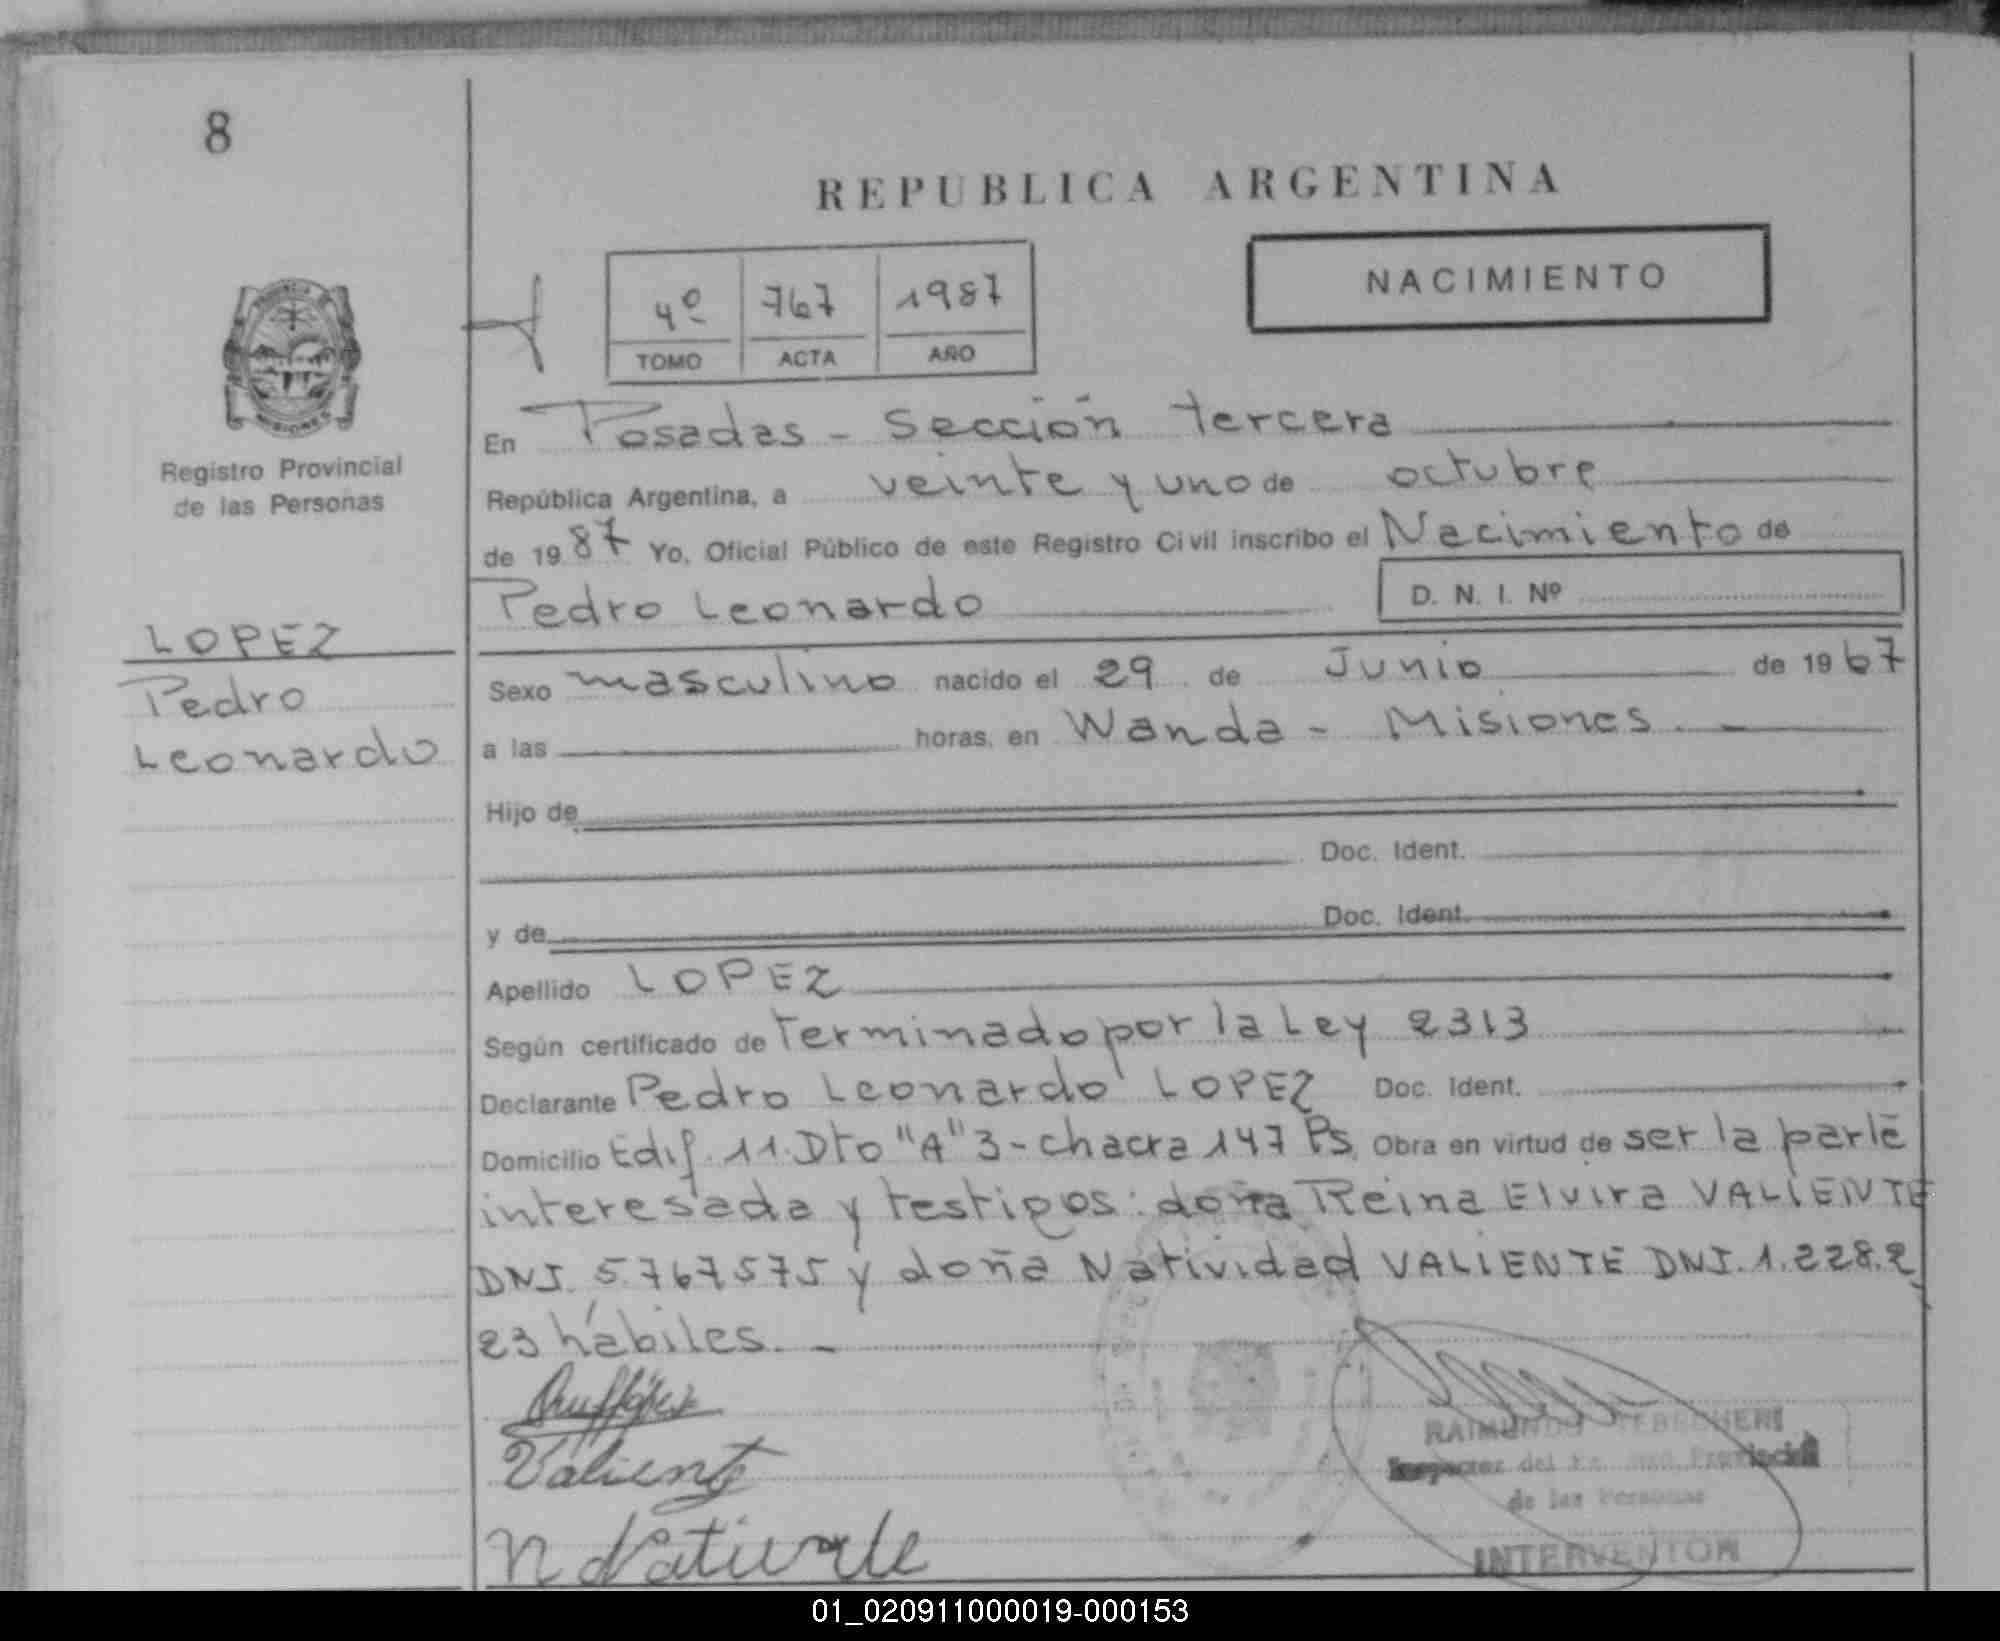 8
REPUBLICA ARGENTINA
4º 767 1987
TOMO ACTA AÑO
NACIMIENTO
MISIONES
Registro Provincial
de las Personas
En Posadas - Sección tercera
República Argentina, a veinte y uno de octubre
de 1987 Yo, Oficial Público de este Registro Civil inscribo el Nacimiento de
Pedro Leonardo D. N. I. Nº
LOPEZ
Pedro
Leonardo
Sexo masculino nacido el 29 de Junio de 1967
a las horas, en Wanda - Misiones. -
Hijo de
Doc. Ident.
y de Doc. Ident.
Apellido LOPEZ
Según certificado de terminado por la Ley 2313
Declarante Pedro Leonardo LOPEZ Doc. Ident.
Domicilio Edif. 11. Dto "A" 3 - chacra 147 Ps. Obra en virtud de ser la parte
interesada y testigos: doña Reina Elvira VALIENTE
DNI. 5.767575 y doña Natividad VALIENTE DNI. 1.228.2
23 hábiles. -
Valiente
RAIMUNDO
Inspector del Provincial
de las Personas
INTERVENTOR
01_020911000019-000153